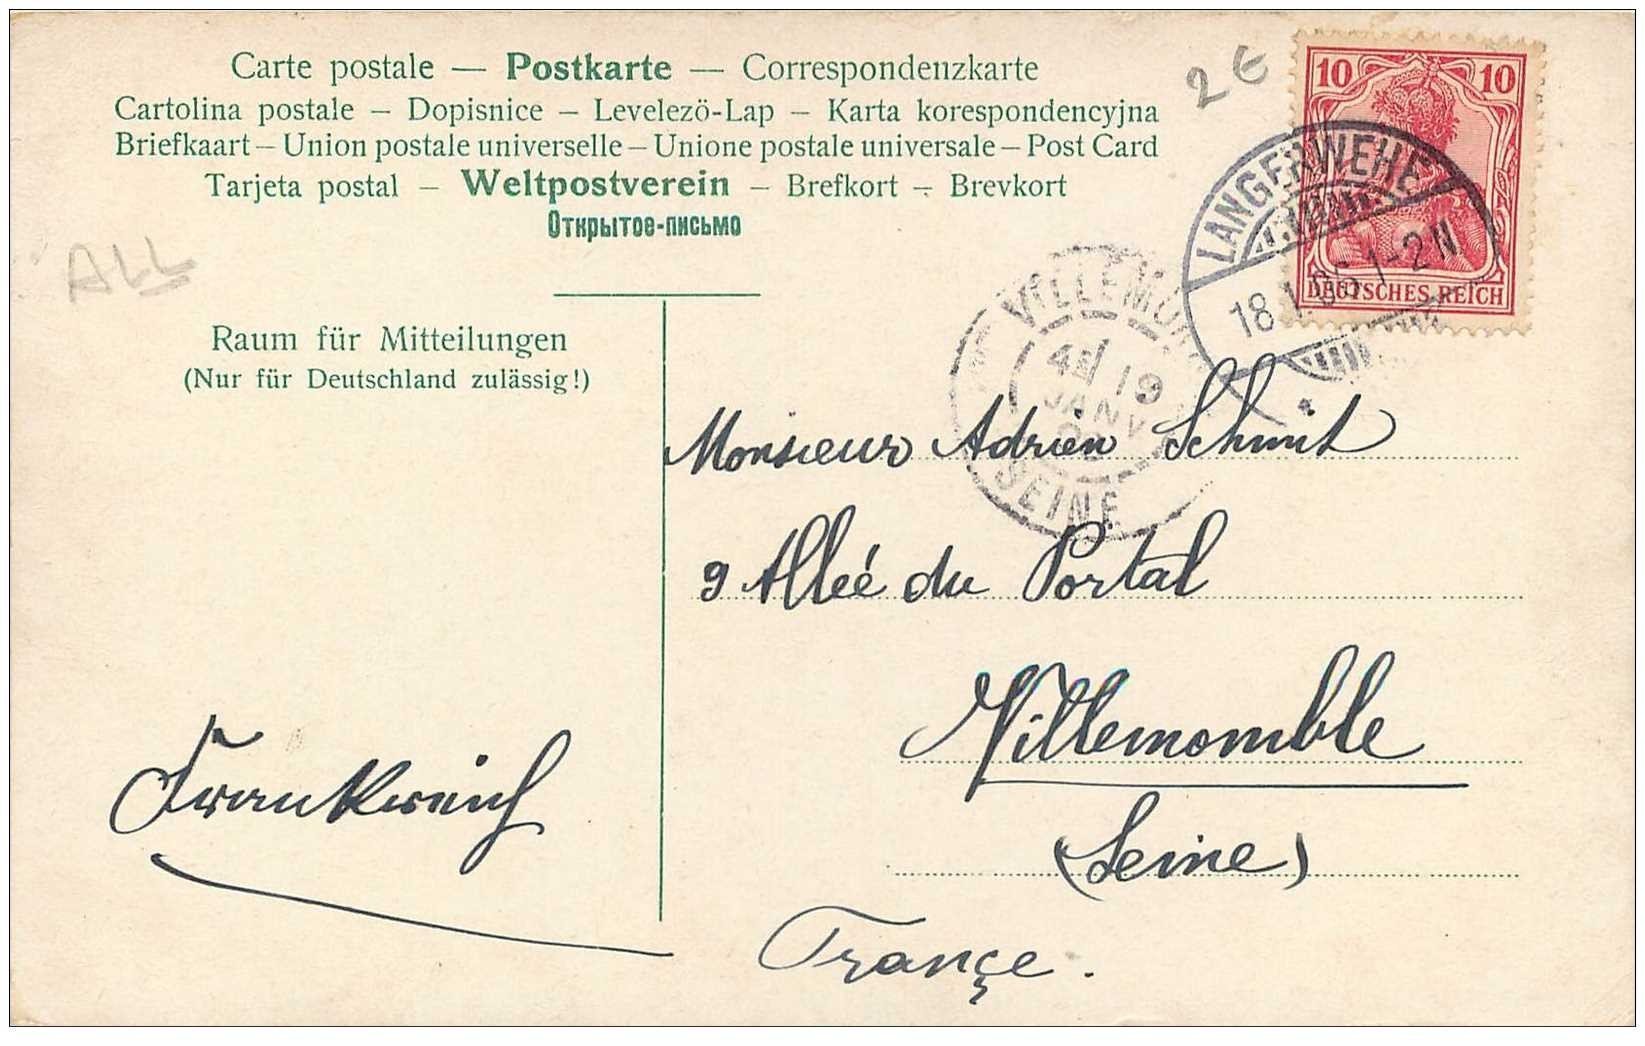 Carte postale — Postkarte — Correspondenzkarte
Cartolina postale – Dopisnice – Levelezö-Lap – Karta korespondencyjna
Briefkaart – Union postale universelle – Unione postale universale – Post Card
Tarjeta postal – Weltpostverein – Brefkort – Brevkort
Открытое-письмо
2 €
10 10
DEUTSCHES REICH
LANGERWEHE
18.1.06 1-2N
ALL
VILLEMOM
4E 19
JANV
SEINE
Raum für Mitteilungen
(Nur für Deutschland zulässig!)
Monsieur Adrien Schmit
9 Alleé du Portal
Villemomble
(Seine)
Françe.
Frankreich